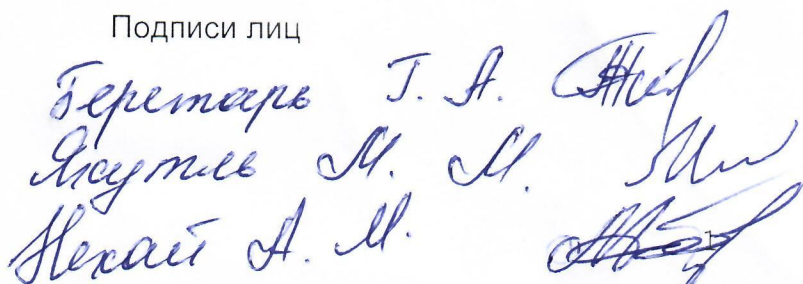 Подписи лиц
Беретарь Т. А.
Якутль М. М.
Нехай А. М.